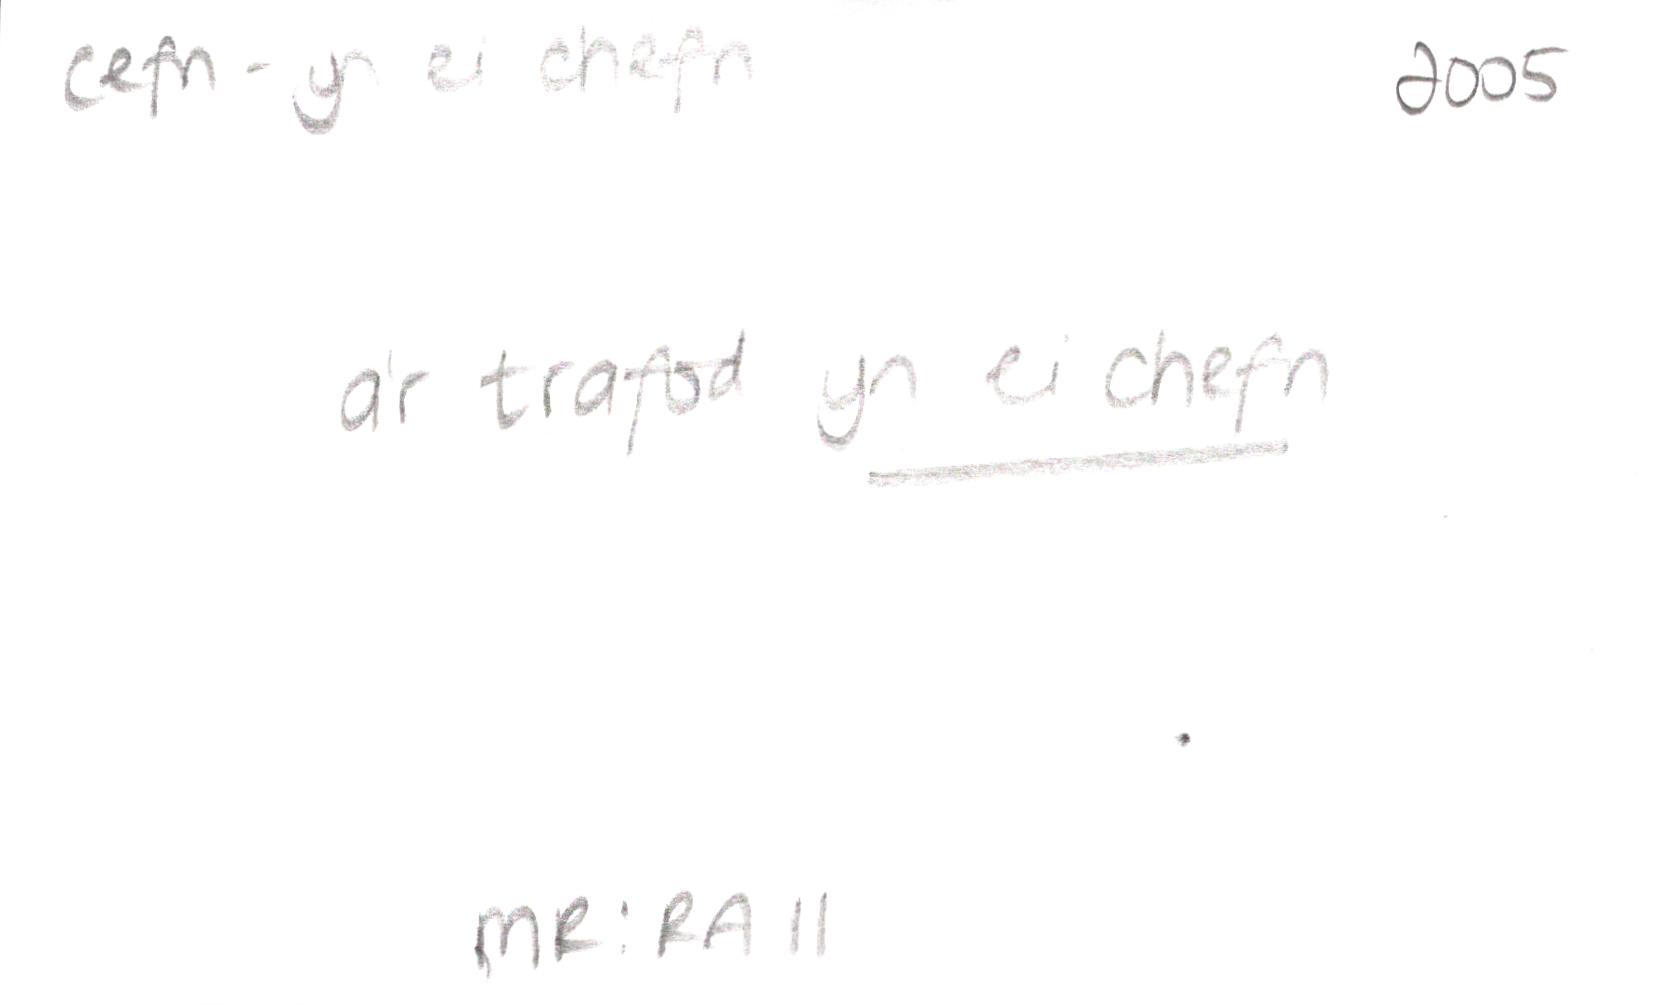 cefn - yn ei chefn 2005
a'r trafod yn ei chefn
MR: RA 11